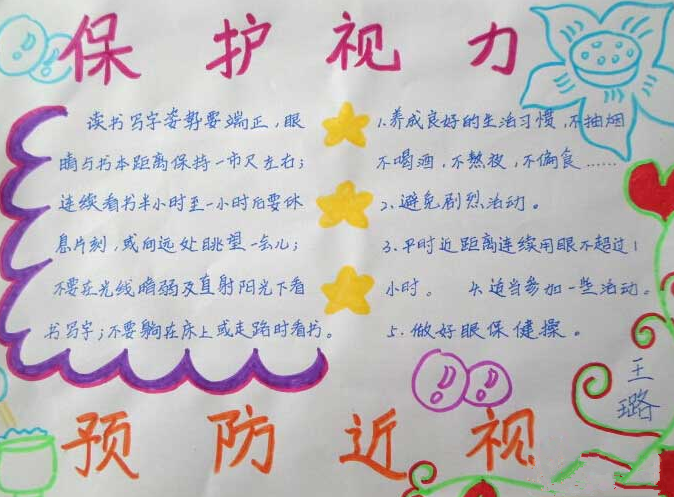 保护视力
读书写字姿势要端正，眼
睛与书本距离保持一市尺左右；
连续看书半小时至一小时后要休
息片刻，或向远处眺望一会儿；
不要在光线暗弱及直射阳光下看
书写字；不要躺在床上或走路时看书。
1.养成良好的生活习惯，不抽烟
不喝酒，不熬夜，不偏食……
2.避免剧烈活动。
3.平时近距离连续用眼不超过1
小时。 4.适当参加一些活动。
5.做好眼保健操。
王
璐
预防近视